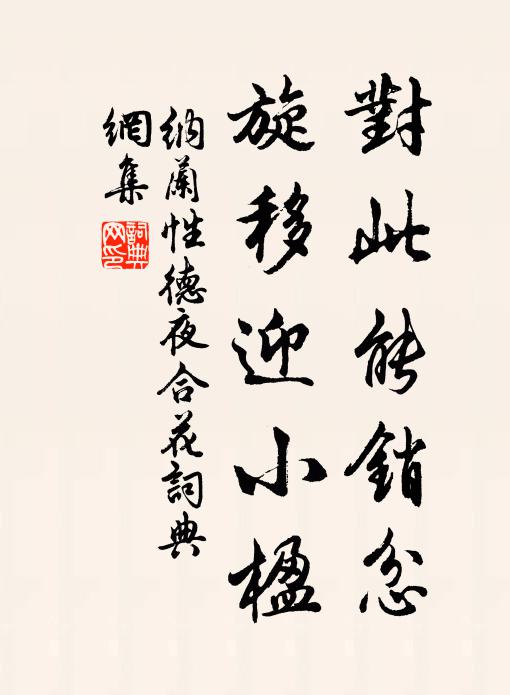 對此能銷忿
旋移迎小楹
納蘭性德夜合花詞典
網集
詞典
网印